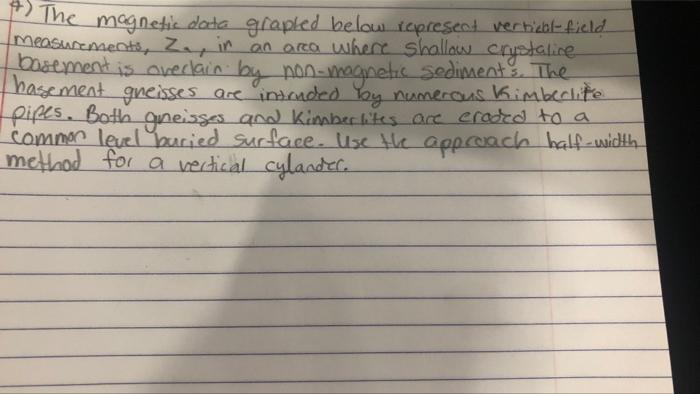 4) The magnetic data graphed below represent verticbl-field
measurements, Za, in an area where shallow crystaline
basement is overlain by non-magnetic sediments. The
basement gneisses are intruded by numerous Kimberlite
pipes. Both gneisses and Kimberlites are eroded to a
common level buried surface. Use the approach half-width
method for a vertical cylander.